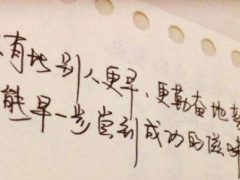 有比别人更早、更勤奋地
能早一步尝到成功的滋味